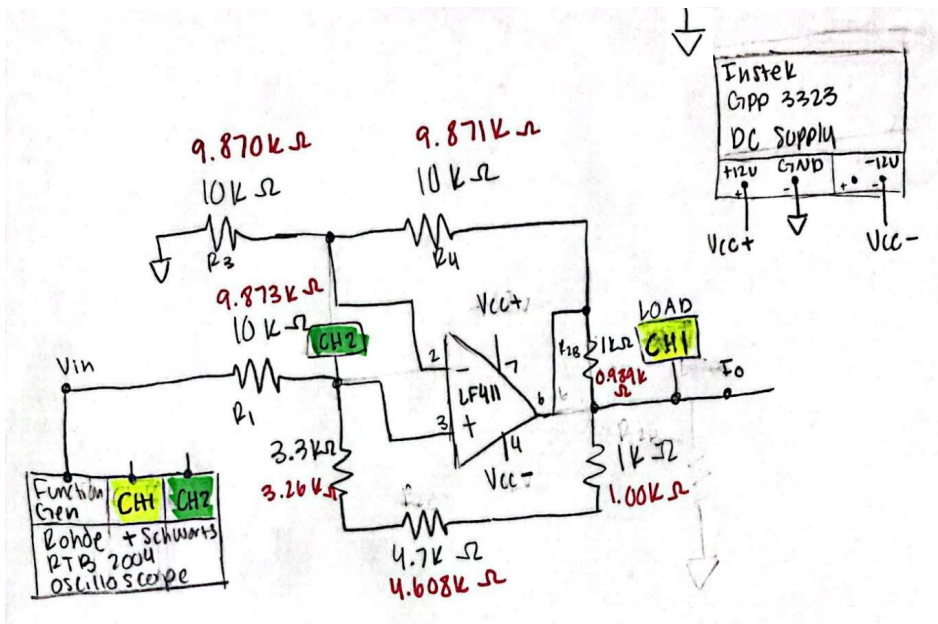 Instek
GPP 3323
DC Supply
+12V GND -12V
+ - + -
Vcc+ Vcc-
9.870K Ω
10K Ω
R3
9.871K Ω
10K Ω
R4
9.873K Ω
10K Ω
R1
CH2
Vin
Vcc+
2
-
7
LF411
3
+
6
4
Vcc-
R2B
1KΩ
0.989K
Ω
LOAD
CH1
Io
3.3KΩ
3.26KΩ
1K Ω
1.00K Ω
4.7K Ω
4.608K Ω
Function
Gen
CH1
CH2
Rohde + Schwarts
RTB 2004
oscilloscope